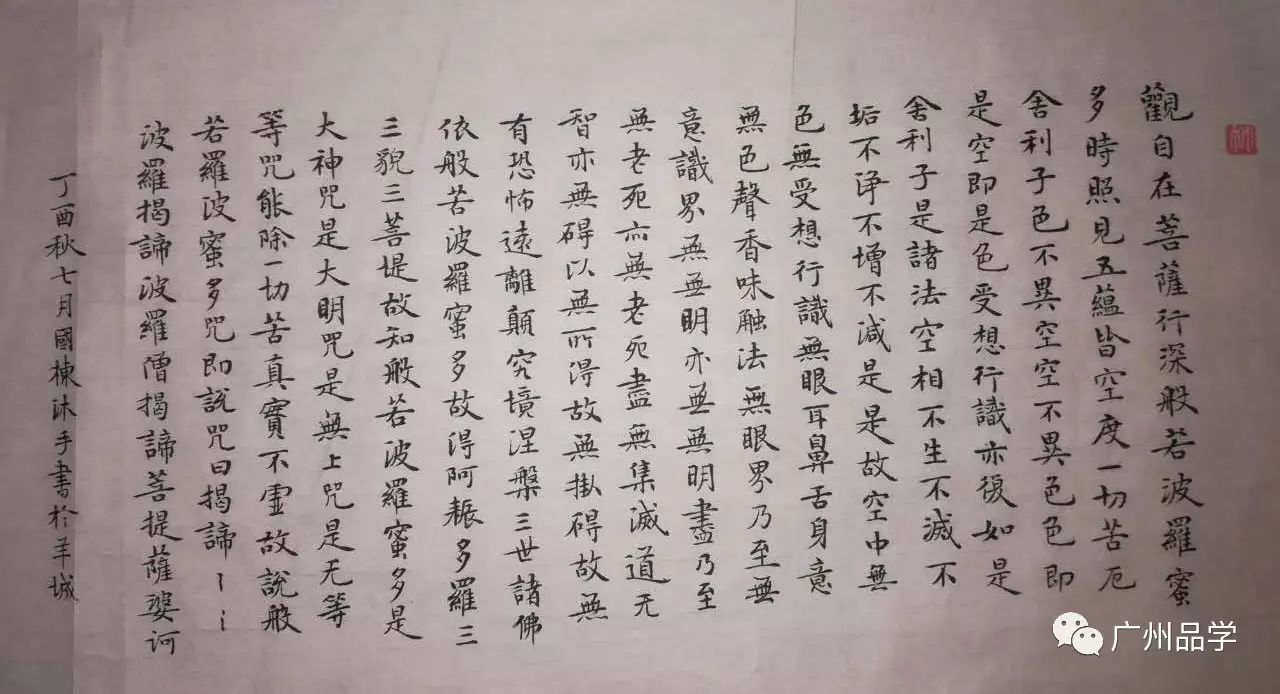 觀自在菩薩行深般若波羅蜜
多時照見五蘊皆空度一切苦厄
舍利子色不異空空不異色色即
是空即是色受想行識亦復如是
舍利子是諸法空相不生不滅不
垢不浄不增不減是是故空中無
色無受想行識無眼耳鼻舌身意
無色聲香味触法無眼界乃至無
意識界無無明亦無無明盡乃至
無老死亦無老死盡無集滅道无
智亦無碍以無所淂故無掛碍故無
有恐怖遠離顛究境涅槃三世諸佛
依般若波羅蜜多故淂阿耨多羅三
三貌三菩堤故知般若波羅蜜多是
大神咒是大明咒是無上咒是无等
等咒能除一切苦真實不虛故說般
若羅波蜜多咒即說咒曰揭諦
波羅揭諦波羅僧揭諦菩提薩婆訶
丁酉秋七月國棟沐手書於羊城
广州品学